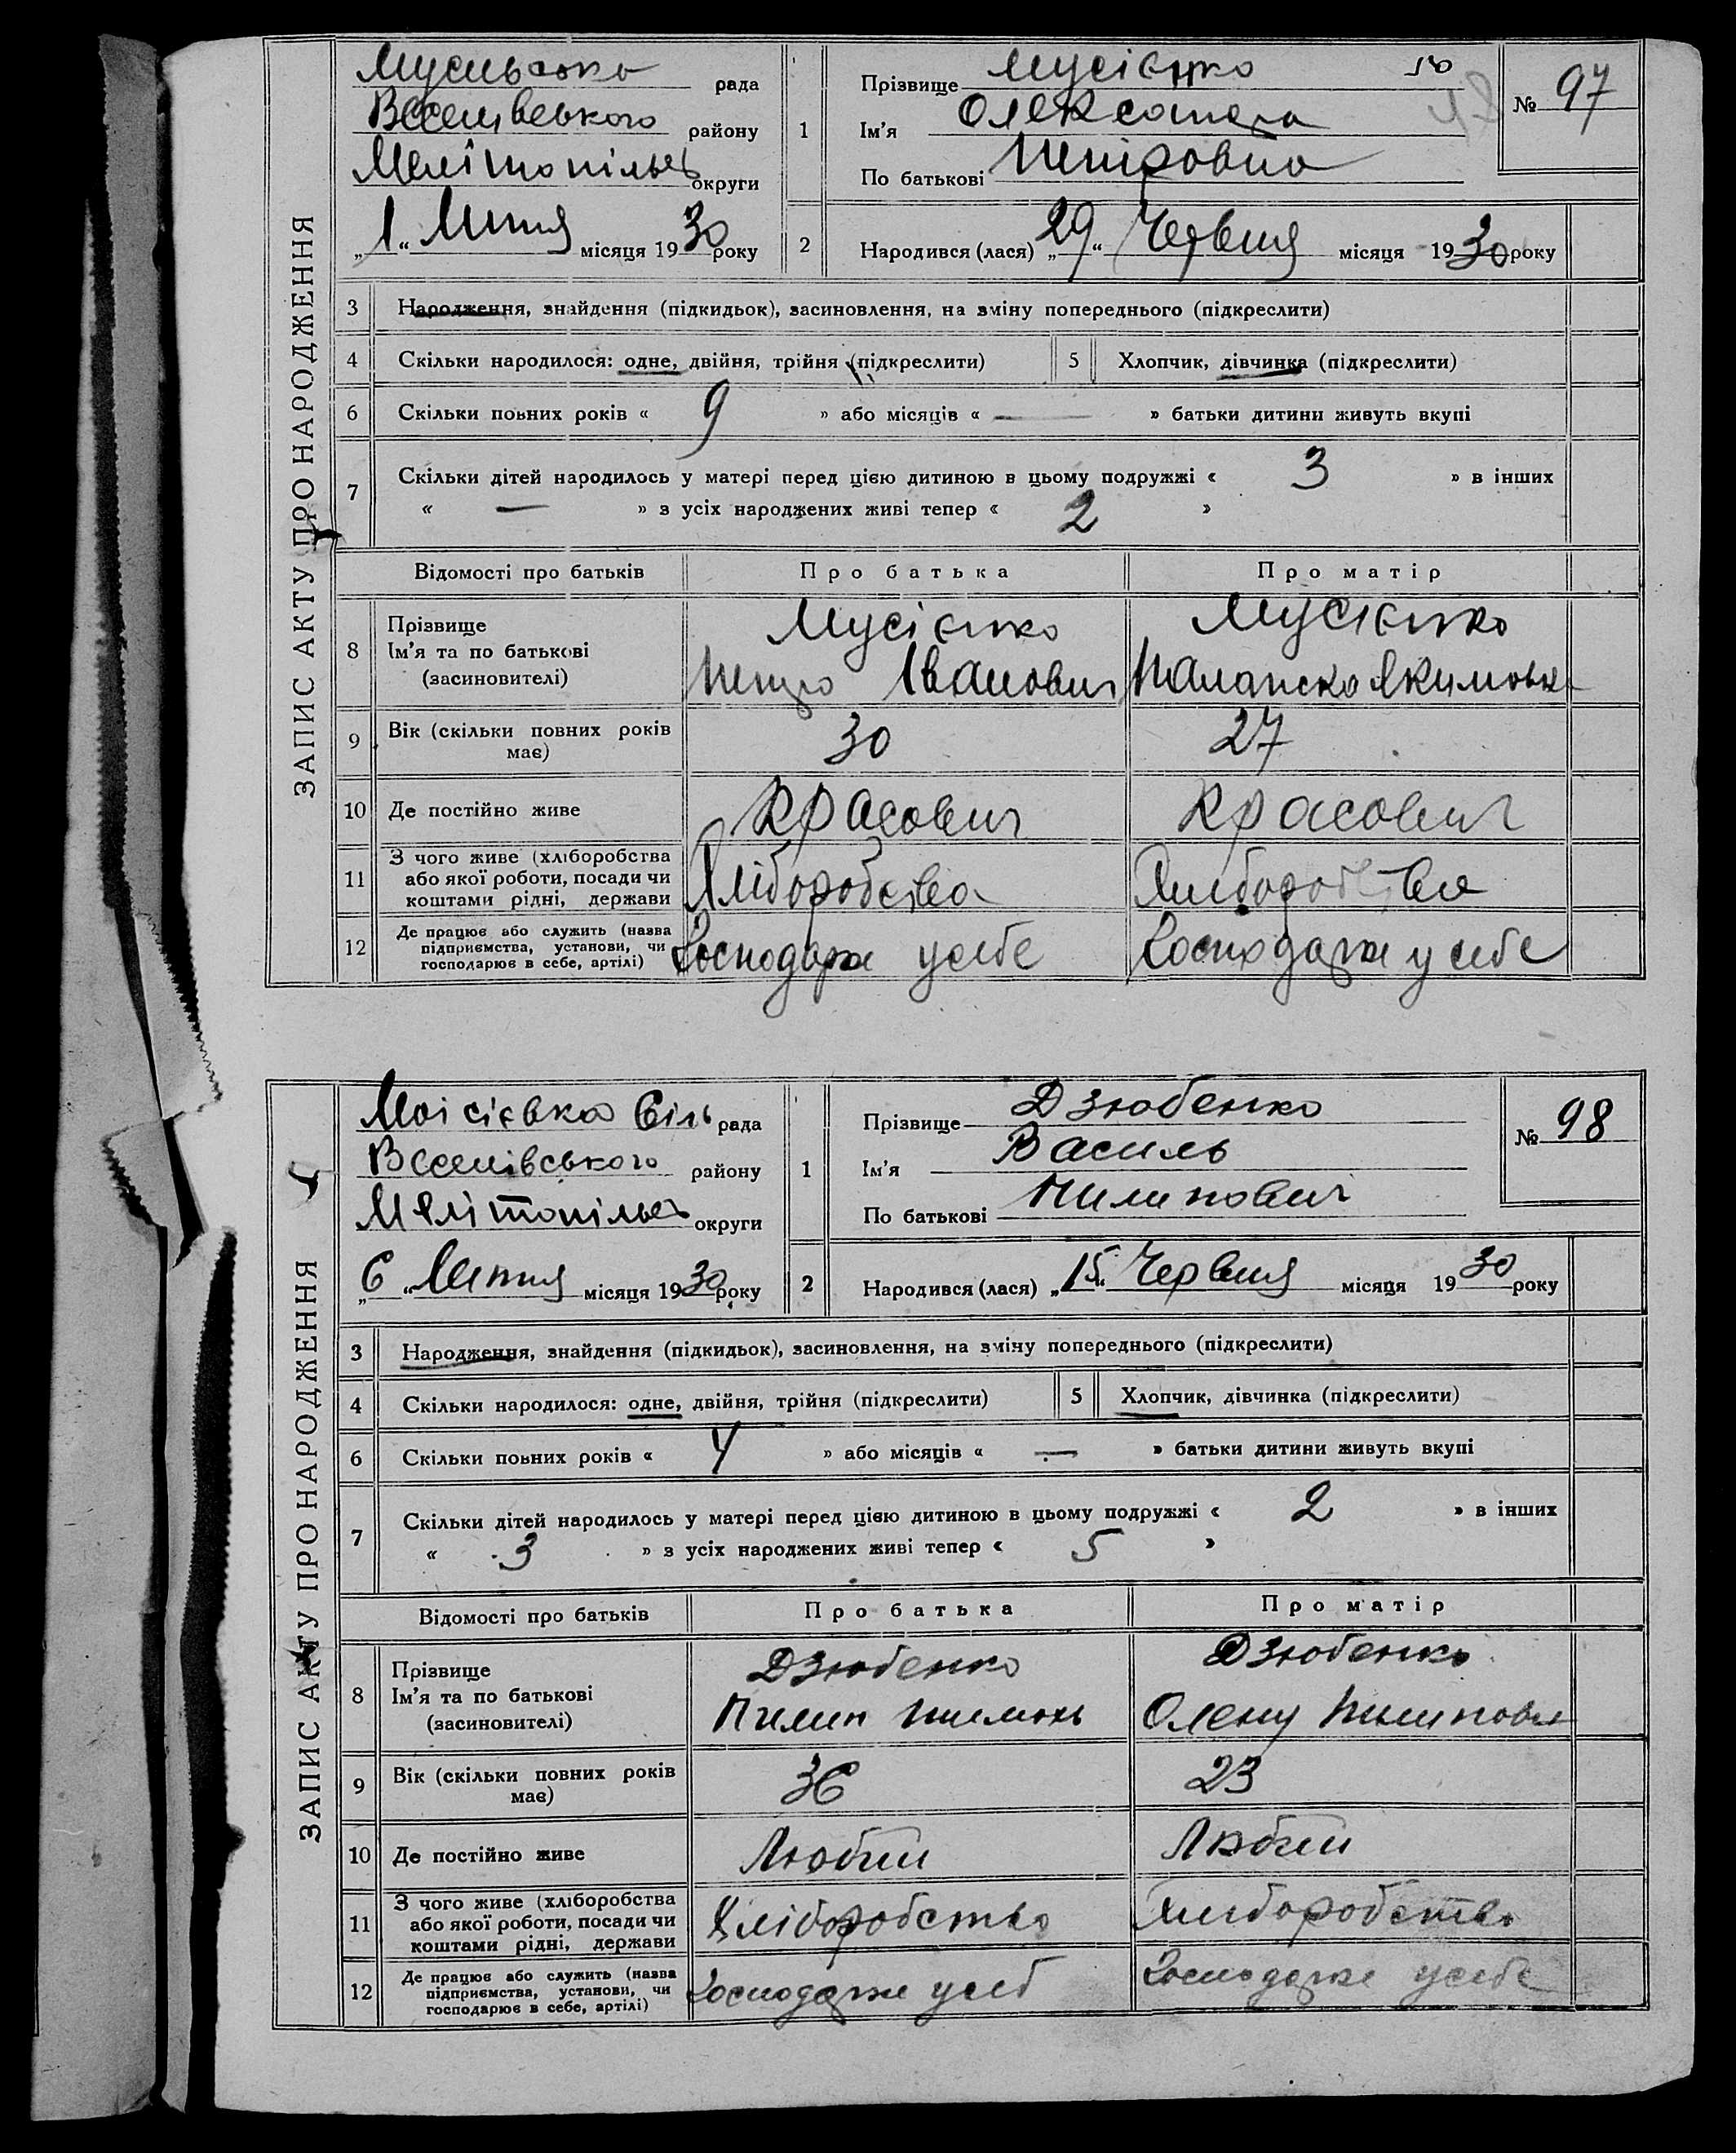 ЗАПИС АКТУ ПРО НАРОДЖЕННЯ
рада
Веселівського району
Мелітопільсь округи
„1“ Липня місяця 1930 року
1
Прізвище Мусієнко
Ім'я Олександра
По батькові Петровна
№ 97
2
Народився (лася) „29“ Червня місяця 1930 року
3 Народження, знайдення (підкидьок), засиновлення, на зміну попереднього (підкреслити)
4 Скільки народилося: одне, двійня, трійня (підкреслити) 5 Хлопчик, дівчинка (підкреслити)
6 Скільки повних років « 9 » або місяців « — » батьки дитини живуть вкупі
7 Скільки дітей народилось у матері перед цією дитиною в цьому подружжі « 3 » в інших
« — » з усіх народжених живі тепер « 2 »
Відомості про батьків Про батька Про матір
8 Прізвище
Ім'я та по батькові
(засновителі)
Мусієнко
Петро Іванович
Мусієнко
Палажка Якимовна
9 Вік (скільки повних років
має)
30 27
10 Де постійно живе
11 З чого живе (хліборобства
або якої роботи, посади чи
коштами рідні, держави
Хліборобства Хліборобства
12 Де працює або служить (назва
підприємства, установи, чи
господарює в себе, артілі)
Господарже у себе Господарже у себе
ЗАПИС АКТУ ПРО НАРОДЖЕННЯ
Моісієвка Сіль рада
Веселівського району
Мелітопільсь округи
„6“ Липня місяця 1930 року
1
Прізвище Дзюбенко
Ім'я Василь
По батькові Пилипович
№ 98
2
Народився (лася) „15“ Червня місяця 1930 року
3 Народження, знайдення (підкидьок), засиновлення, на зміну попереднього (підкреслити)
4 Скільки народилося: одне, двійня, трійня (підкреслити) 5 Хлопчик, дівчинка (підкреслити)
6 Скільки повних років « 4 » або місяців « — » батьки дитини живуть вкупі
7 Скільки дітей народилось у матері перед цією дитиною в цьому подружжі « 2 » в інших
« 3 » з усіх народжених живі тепер « 5 »
Відомості про батьків Про батька Про матір
8 Прізвище
Ім'я та по батькові
(засиновителі)
Дзюбенко
Пилип
Дзюбенко
Олену Пилиповн
9 Вік (скільки повних років
має)
36 23
10 Де постійно живе
11 З чого живе (хліборобства
або якої роботи, посади чи
коштами рідні, держави
Хліборобство Хліборобство
12 Де працює або служить (назва
підприємства, установи, чи
господарює в себе, артілі)
Господарже у себ Господарже у себе